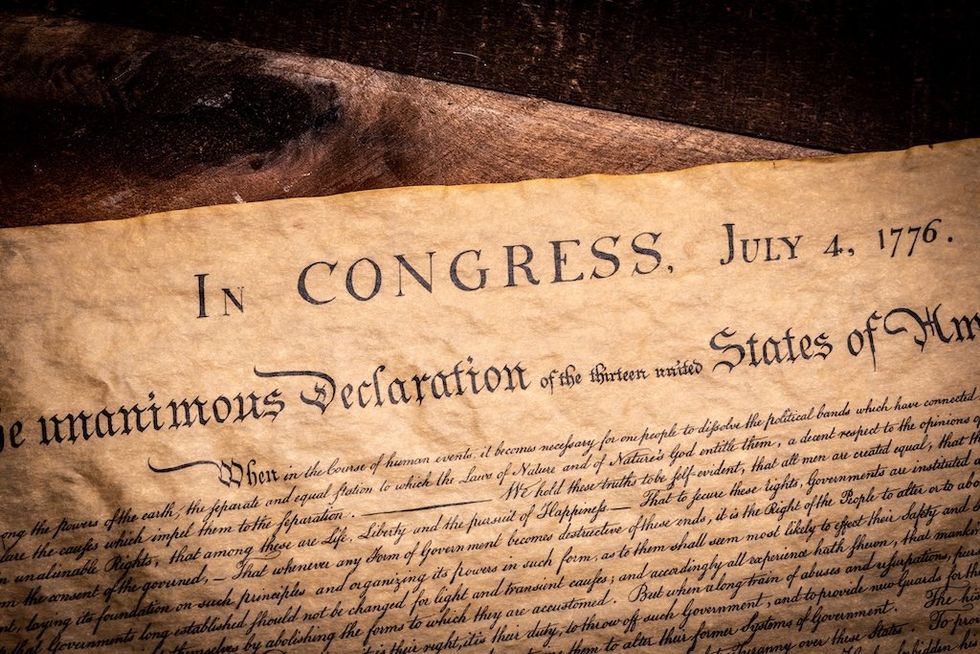 In CONGRESS, July 4, 1776.
he unanimous Declaration of the thirteen united States of Am
When in the Course of human events, it becomes neceſsary for one people to diſsolve the political bands which have connected
ong the powers of the earth, the ſeparate and equal ſtation to which the Laws of Nature and of Nature's God entitle them, a decent respect to the opinions o
are the cauſes which impel them to the ſeparation. —— We hold these truths to be ſelf-evident, that all men are created equal, that th
n unalienable Rights, that among these are Life, Liberty and the pursuit of Happineſs.— That to secure these rights, Governments are instituted a
m the consent of the governed, — That whenever any Form of Government becomes destructive of these ends, it is the Right of the People to alter or to abo
nt, laying its foundation on such principles and organizing its powers in such form, as to them shall seem most likely to effect their Safety and
that Governments long established should not be changed for light and transient cauſes; and accordingly all experience hath ſhewn, that mank
themselves by abolishing the forms to which they are accustomed. But when a long train of abuses and uſurpations, pur
it is their right, it is their duty, to throw off such Government, and to provide new Guards for th
them to alter their former Systems of Government. The his
Tyranny over these States. To pro